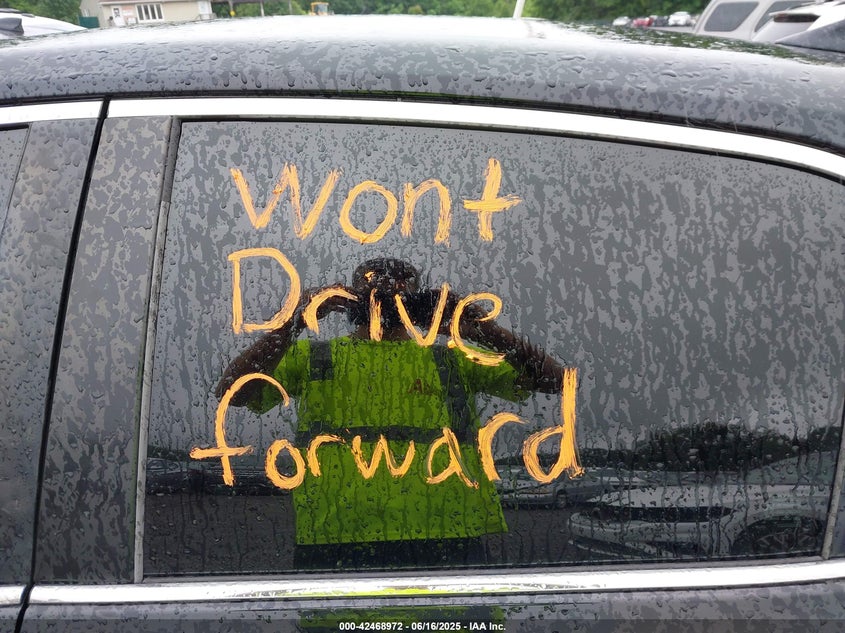 Wont
Drive
forward
000-42468972 - 06/16/2025 - IAA Inc.